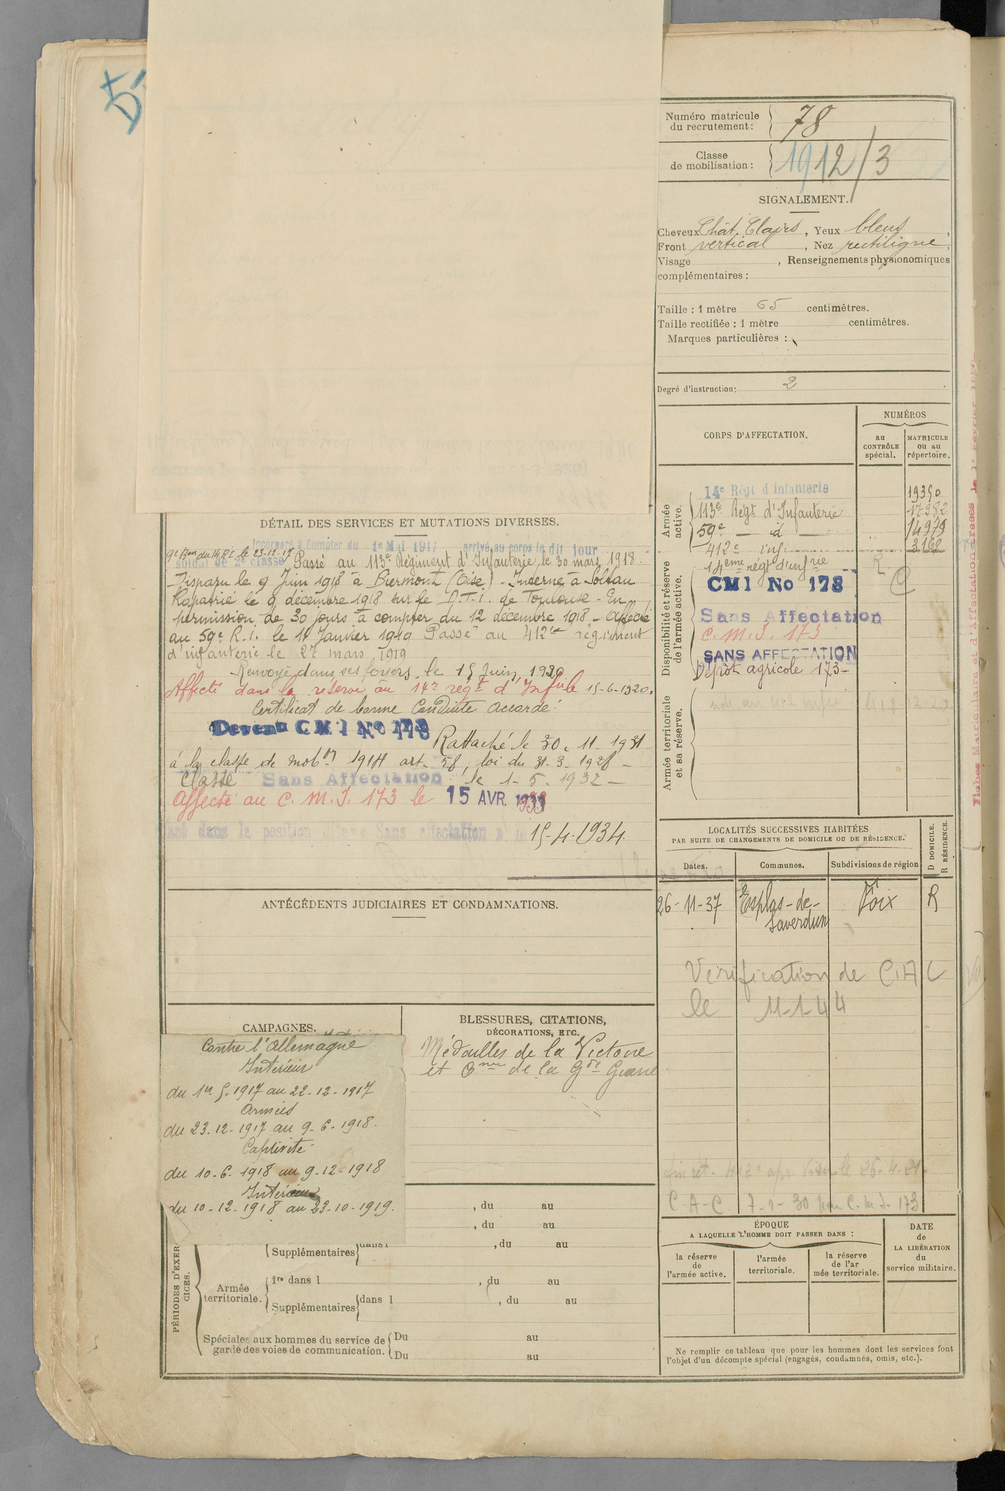 Numéro matricule
du recrutement: 78
Classe
de mobilisation: 1912/3
SIGNALEMENT.
Cheveux Chât. Clairs, Yeux bleus,
Front vertical, Nez rectiligne,
Visage , Renseignements physionomiques
complémentaires:
Taille: 1 mètre 65 centimètres.
Taille rectifiée: 1 mètre centimètres.
Marques particulières:
Degré d'instruction: 2
CORPS D'AFFECTATION.
NUMÉROS
au CONTRÔLE spécial.
MATRICULE ou au répertoire.
Armée active.
14e Régt d'Infanterie 19390
113e Regt d'Infanterie 17982
59e — d — 14979
412e inf 3162
Disponibilité et réserve de l'armée active.
14ème régt d'infrie
CMI No 173
Sans Affectation
C. M. I. 173
SANS AFFECTATION
Dépôt agricole 173
Armée territoriale et sa réserve.
DÉTAIL DES SERVICES ET MUTATIONS DIVERSES.
Incorporé à Compter du 1er Mai 1917 arrivé au corps le dit jour
soldat de 2e classe Passé au 113e Régiment d'Infanterie le 30 mars 1918.
Disparu le 9 Juin 1918 à Biermont (Oise) - Interné à Soltau
Rapatrié le 9 décembre 1918 sur le D.T.I. de Toulouse - En
permission de 30 jours à compter du 12 décembre 1918 - Affecté
au 59e R.I. le 11 Janvier 1919 Passé au 412e régiment
d'infanterie le 27 mars 1919
Renvoyé dans ses foyers le 15 Juin 1920
Affecté dans la réserve au 14e regt d'Infrie 15-6-1920.
Certificat de bonne Conduite accordé.
Devenu CMI No 173
Rattaché le 30.11.1931
à la classe de mobon 1914 art. 58, loi du 31-3-1928 -
Classé Sans Affectation le 1-5-1932 -
Affecté au C. M. I. 173 le 15 AVR. 1933
Placé dans la position dite Sans affectation 15-4-1934
LOCALITÉS SUCCESSIVES HABITÉES
PAR SUITE DE CHANGEMENTS DE DOMICILE OU DE RÉSIDENCE.
Dates. Communes. Subdivisions de région D DOMICILE. R RÉSIDENCE.
26-11-37 Esplas-de-Saverdun Foix R
Vérification de C.A.C
le 11-1-44
C-A-C 7-1-30
ANTÉCÉDENTS JUDICIAIRES ET CONDAMNATIONS.
CAMPAGNES.
Contre l'Allemagne
Intérieur
du 1er 5-1917 au 22-12-1917
Armées
du 23-12-1917 au 9-6-1918.
Captivité
du 10-6-1918 au 9-12-1918
Intérieur
du 10-12-1918 au 23-10-1919.
BLESSURES, CITATIONS,
DÉCORATIONS, ETC.
Médailles de la Victoire
et Cmm de la Gde Guerre
, du au
, du au
Supplémentaires dans l , du au
PÉRIODES D'EXERCICES.
Armée territoriale.
1re dans l , du au
Supplémentaires dans l , du au
Spéciales aux hommes du service de garde des voies de communication. Du au
Du au
ÉPOQUE
A LAQUELLE L'HOMME DOIT PASSER DANS:
la réserve de l'armée active.
l'armée territoriale.
la réserve de l'armée territoriale.
DATE de LA LIBÉRATION du service militaire.
Ne remplir ce tableau que pour les hommes dont les services font
l'objet d'un décompte spécial (engagés, condamnés, omis, etc.).